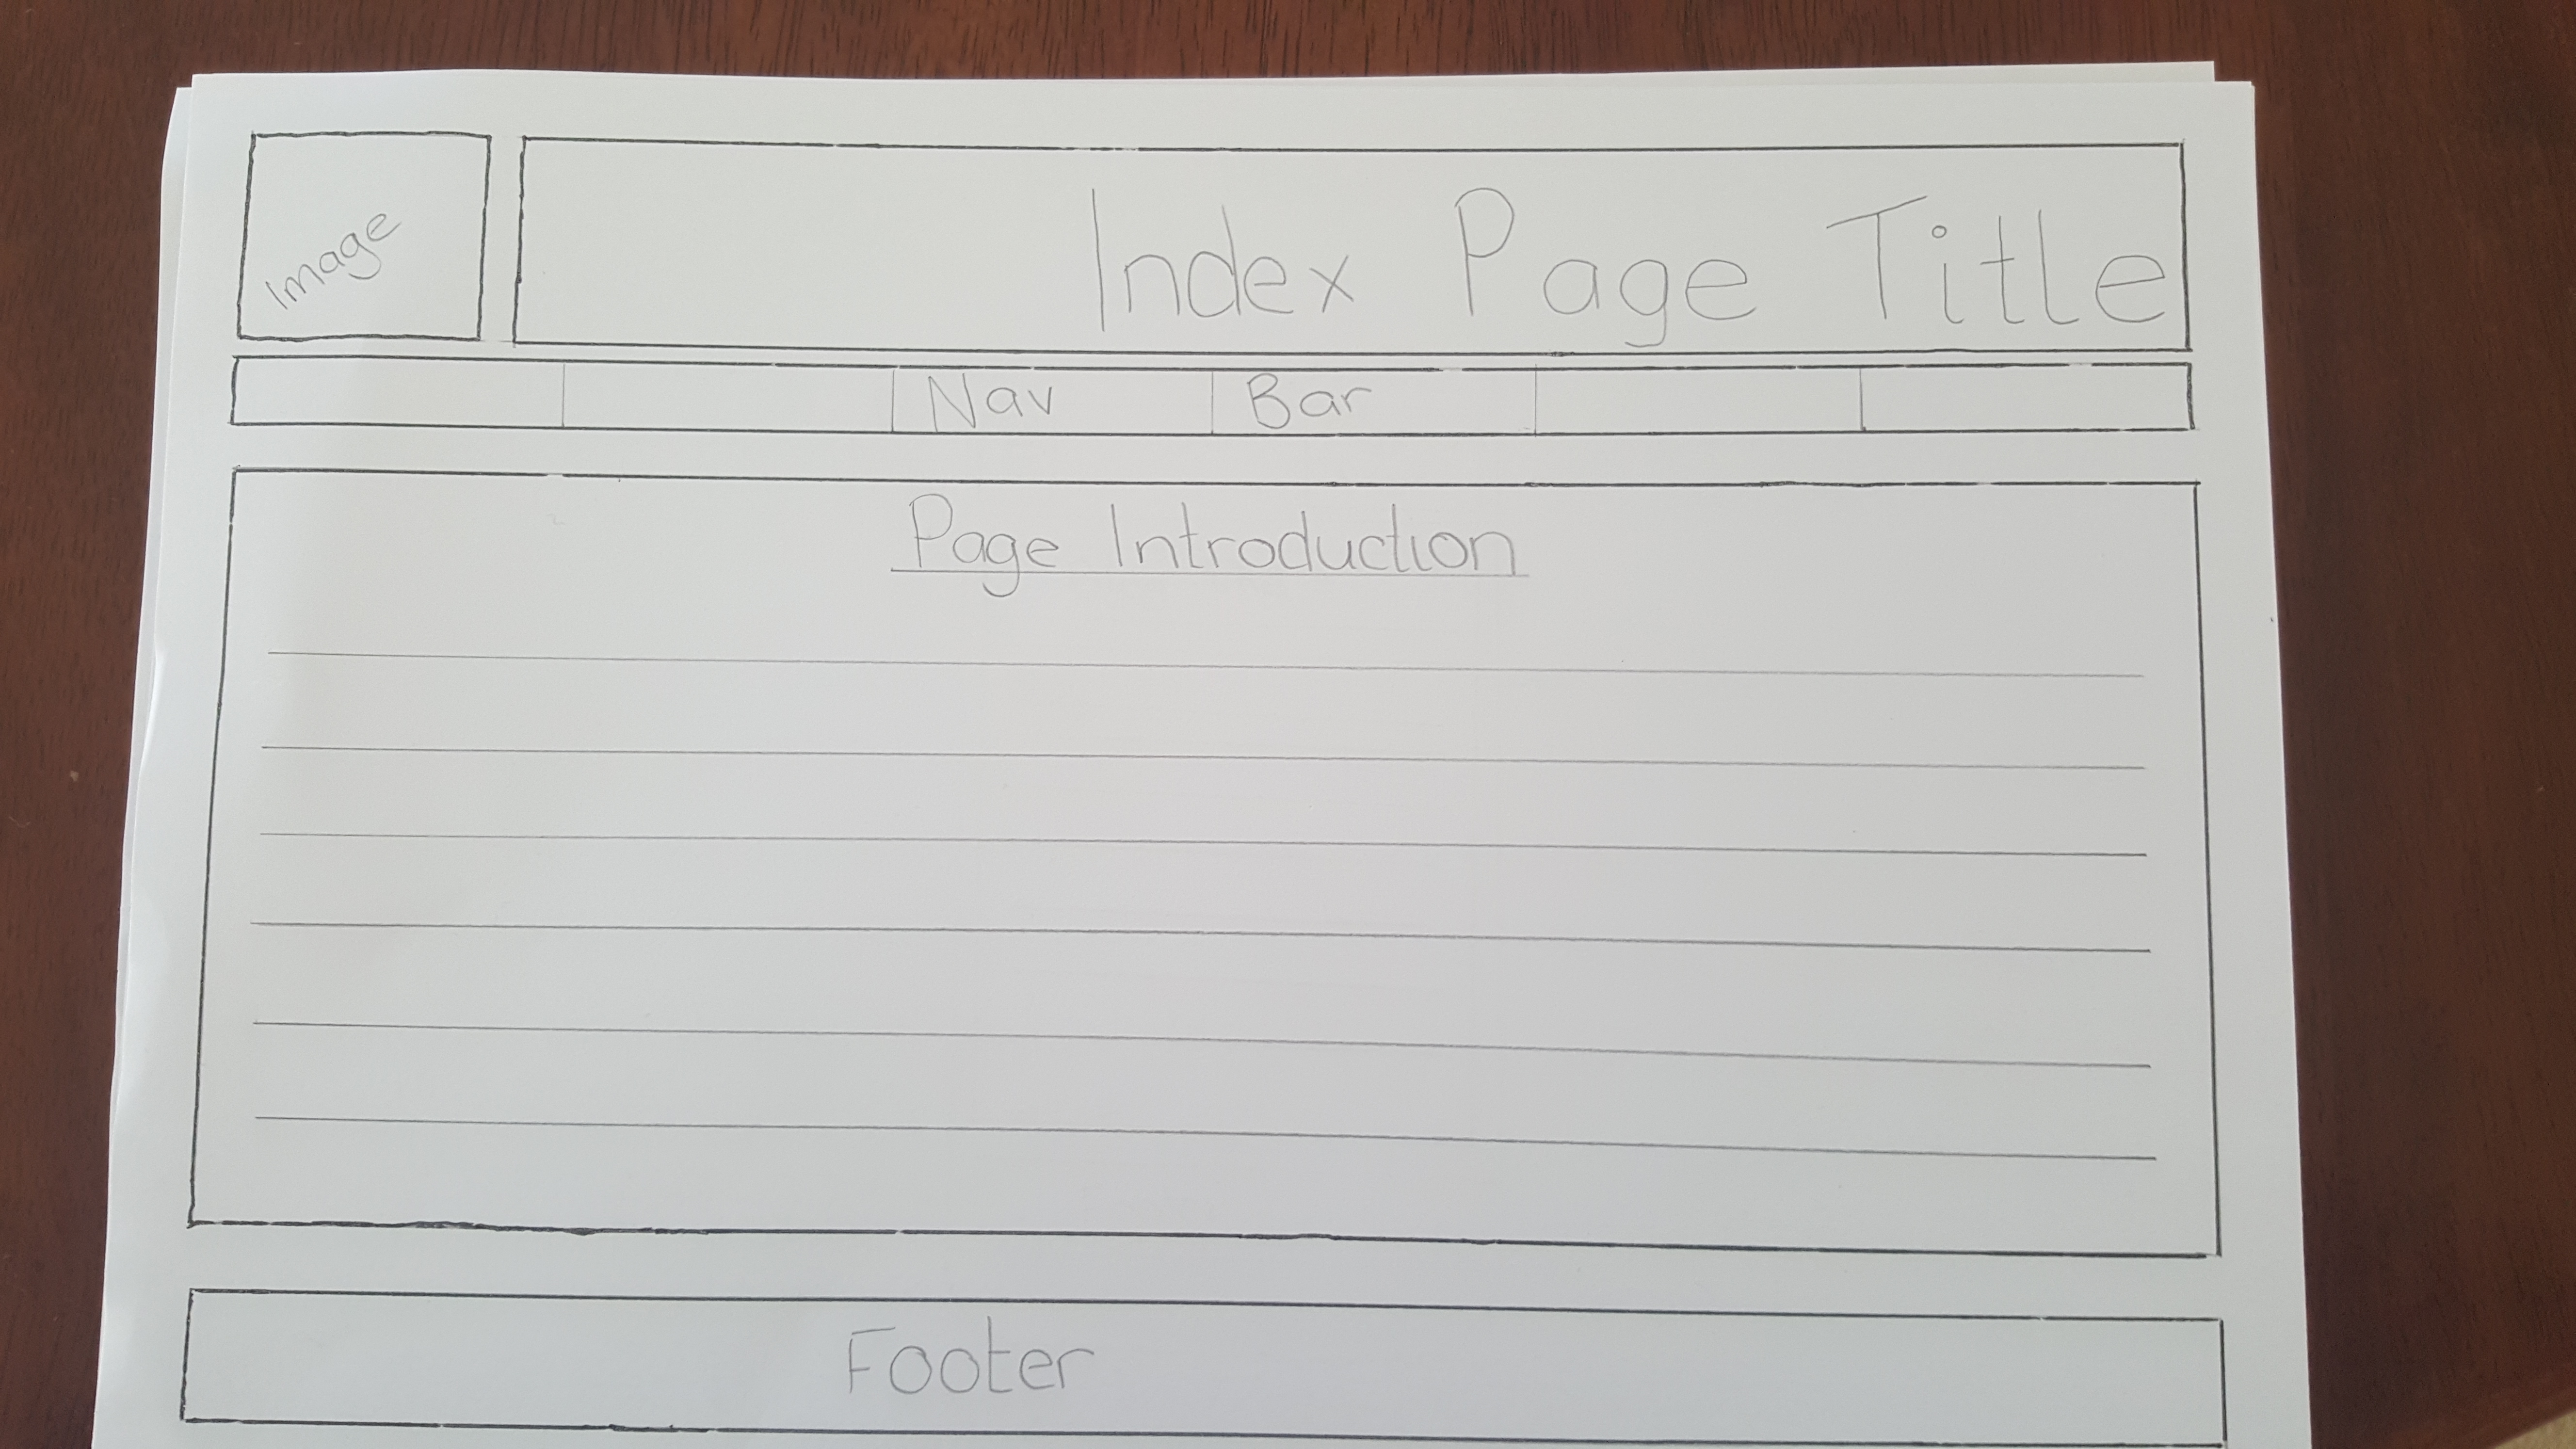 Image
Index Page Title
Nav Bar
Page Introduction
Footer